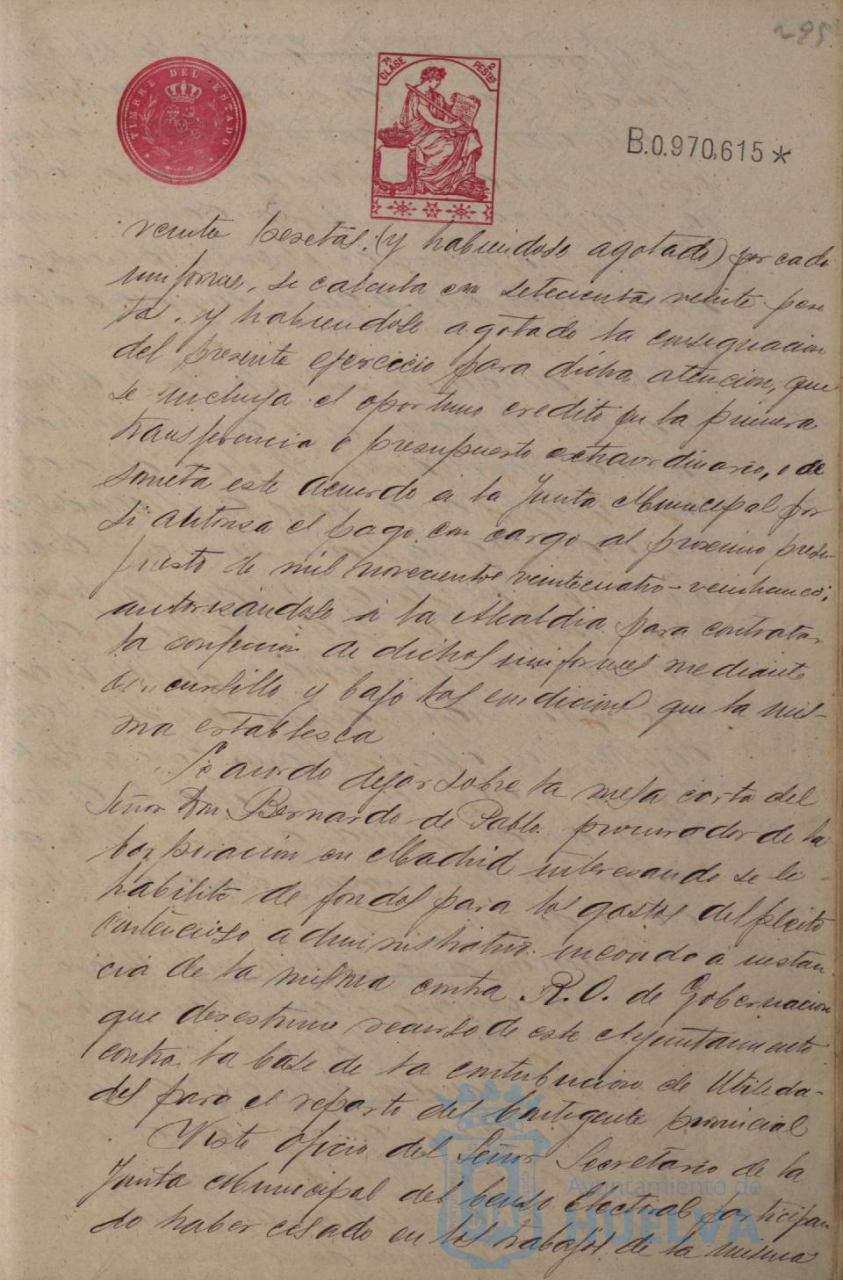 295
TIMBRE DEL ESTADO
7ª CLASE 2 PESTAS
B.0.970.615*
veinte pesetas (y habiendose agotado) por cada
uniforme, se calcula en setecientas veinte pese
tas, y habiendose agotado la consignacion
del presente ejercicio para dicha atencion, que
se incluya el oportuno credito en la primera
transferencia o presupuesto extraordinario, o se
someta este acuerdo a la Junta Municipal por
si autorisa el pago con cargo al proximo presu-
puesto de mil novecientos veinticuatro-veinticinco;
autorisandose a la Alcaldia para contratar
la confeccion de dichos uniformes mediante
concursillo y bajo las condiciones que la mis-
ma establesca
Se acordo dejar sobre la mesa carta del
Señor Don Bernardo de Pablo procurador de la
Corporacion en Madrid interesando se le
habilite de fondos para los gastos del pleito
contencioso administrativo incoado a instan-
cia de la misma contra R.O. de Gobernacion
que desestimo recurso de este Ayuntamiento
contra la base de la contribucion de Utilida-
des para el reparto del Contigente provincial
Visto oficio del Señor Secretario de la
Junta Municipal del Censo electoral participan
do haber cesado en los trabajos de la misma
Ayuntamiento de
HUELVA